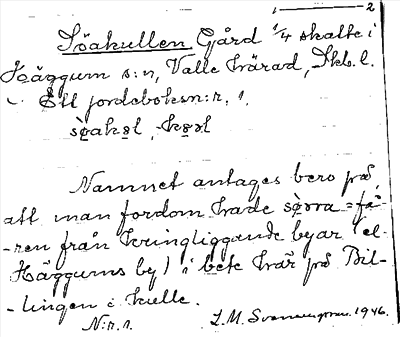 1 — 2
Söakullen Gård 1/4 skatte i
Häggum s:n, Valle härad, Skb. l.
Ett jordeboksn:r, 1.
Namnet antages bero på,
att man fordom hade söora = få-
-ren från kringliggande byar (el.
Häggums by) i bete här på Bil-
-lingen i kulle.
N:r. 1.
L.M. Svenungsson. 1946.